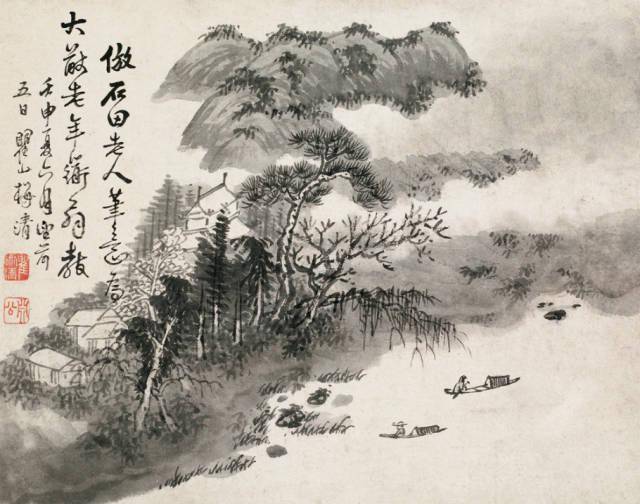 倣石田老人筆意為
大 老年 翁教
壬申夏六月望前
五日瞿山梅清